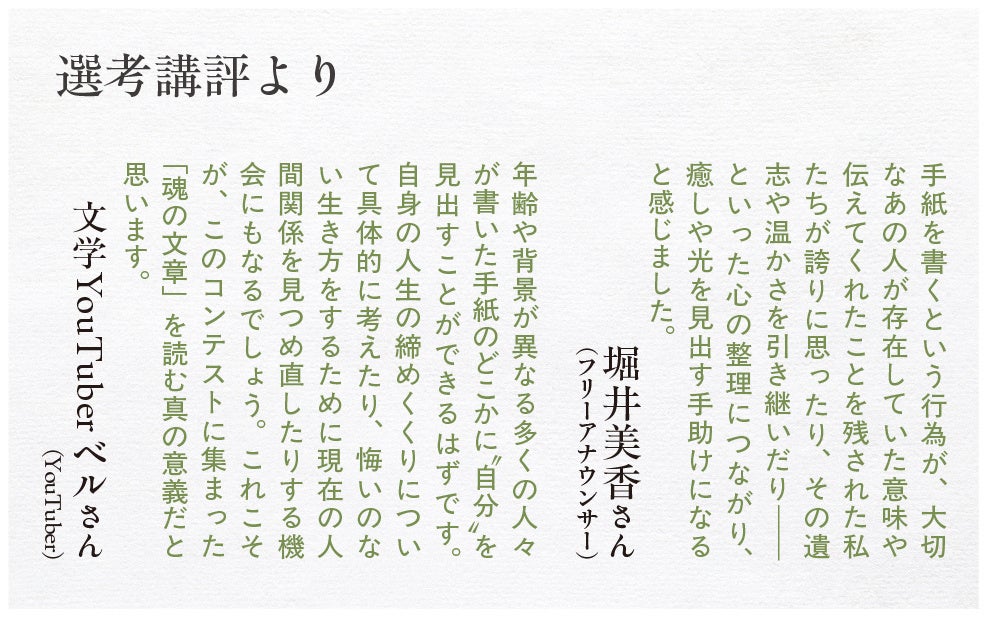 選考講評より
手紙を書くという行為が、大切
なあの人が存在していた意味や
伝えてくれたことを残された私
たちが誇りに思ったり、その遺
志や温かさを引き継いだり――
といった心の整理につながり、
癒しや光を見出す手助けになる
と感じました。
堀井美香さん
(フリーアナウンサー)
年齢や背景が異なる多くの人々
が書いた手紙のどこかに〝自分〟を
見出すことができるはずです。
自身の人生の締めくくりについ
て具体的に考えたり、悔いのな
い生き方をするために現在の人
間関係を見つめ直したりする機
会にもなるでしょう。これこそ
が、このコンテストに集まった
「魂の文章」を読む真の意義だと
思います。
文学YouTuberベルさん
(YouTuber)